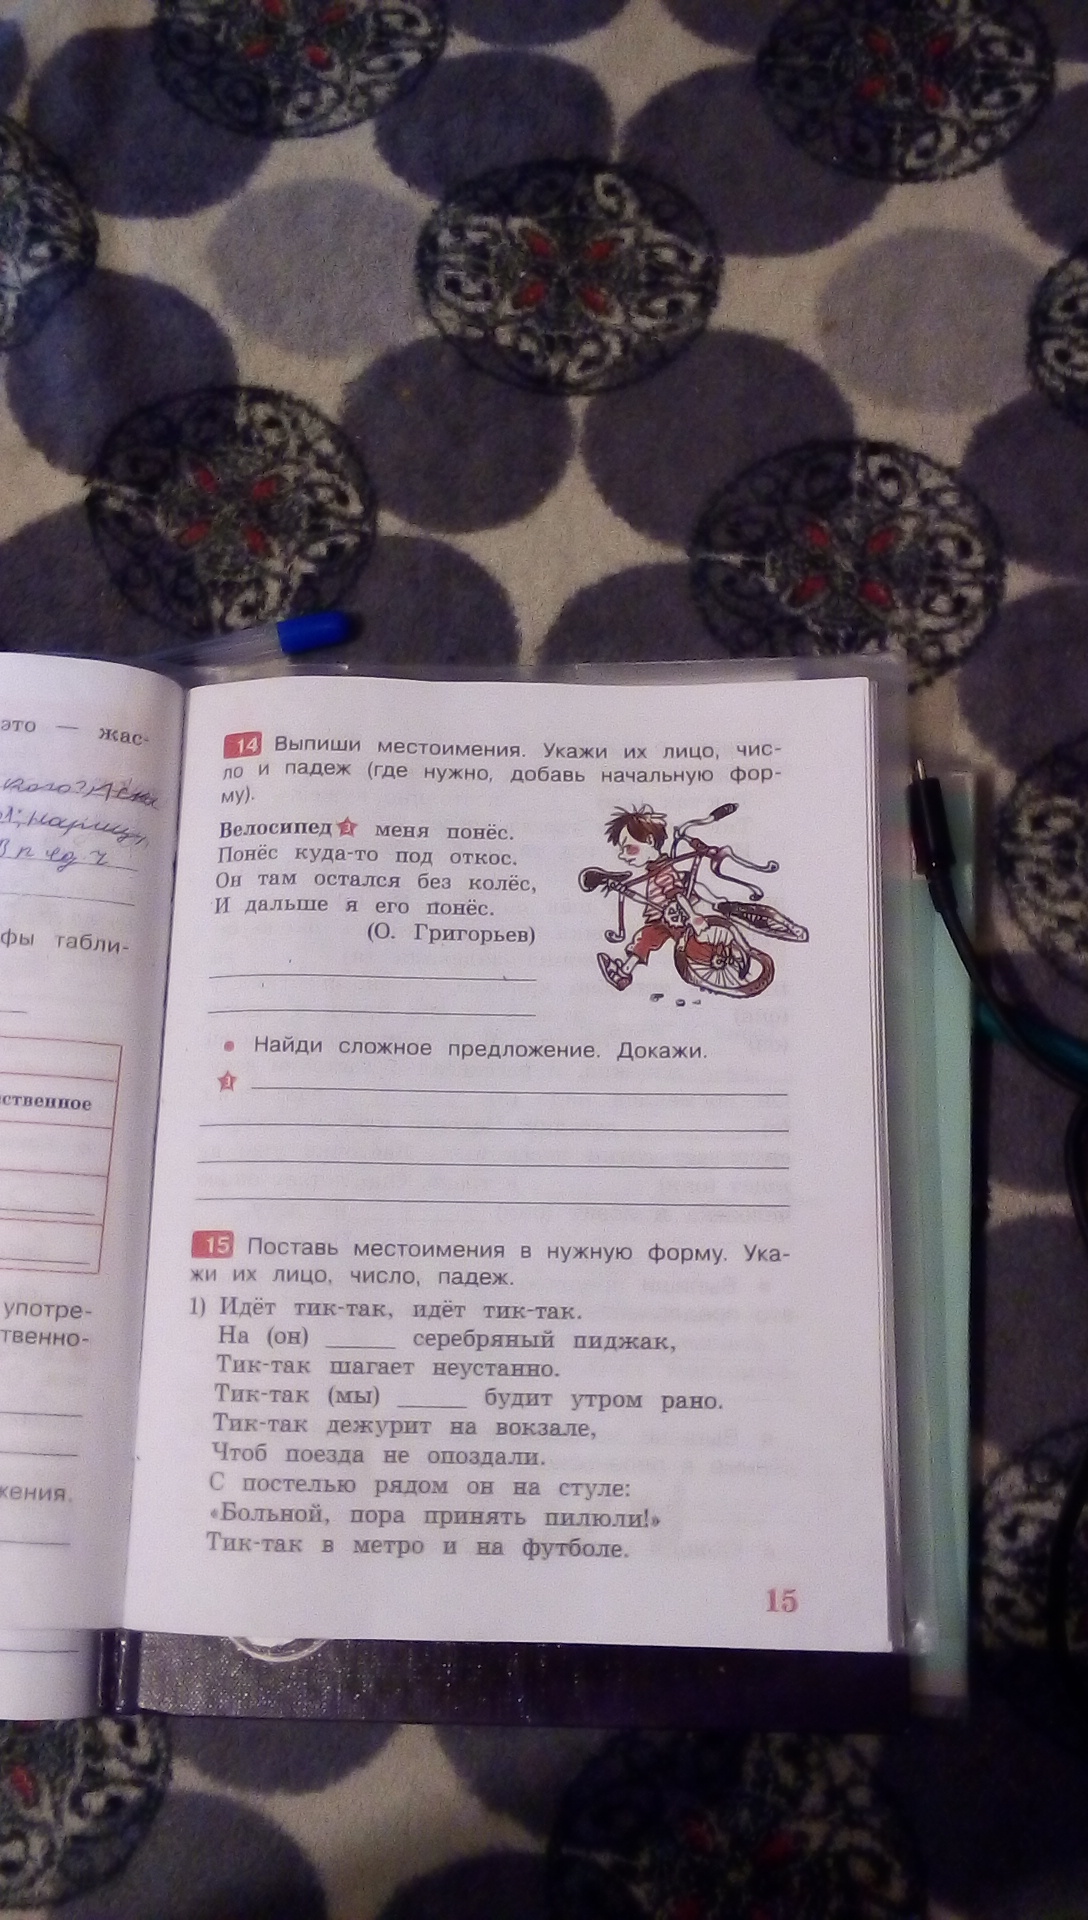 это — жас-
фы табли-
ственное
употре-
твенно-
жения.
14 Выпиши местоимения. Укажи их лицо, чис-
ло и падеж (где нужно, добавь начальную фор-
му).
Велосипед 3 меня понёс.
Понёс куда-то под откос.
Он там остался без колёс,
И дальше я его понёс.
(О. Григорьев)
• Найди сложное предложение. Докажи.
3
15 Поставь местоимения в нужную форму. Ука-
жи их лицо, число, падеж.
1) Идёт тик-так, идёт тик-так.
На (он) _____ серебряный пиджак,
Тик-так шагает неустанно.
Тик-так (мы) _____ будит утром рано.
Тик-так дежурит на вокзале,
Чтоб поезда не опоздали.
С постелью рядом он на стуле:
«Больной, пора принять пилюли!»
Тик-так в метро и на футболе.
15